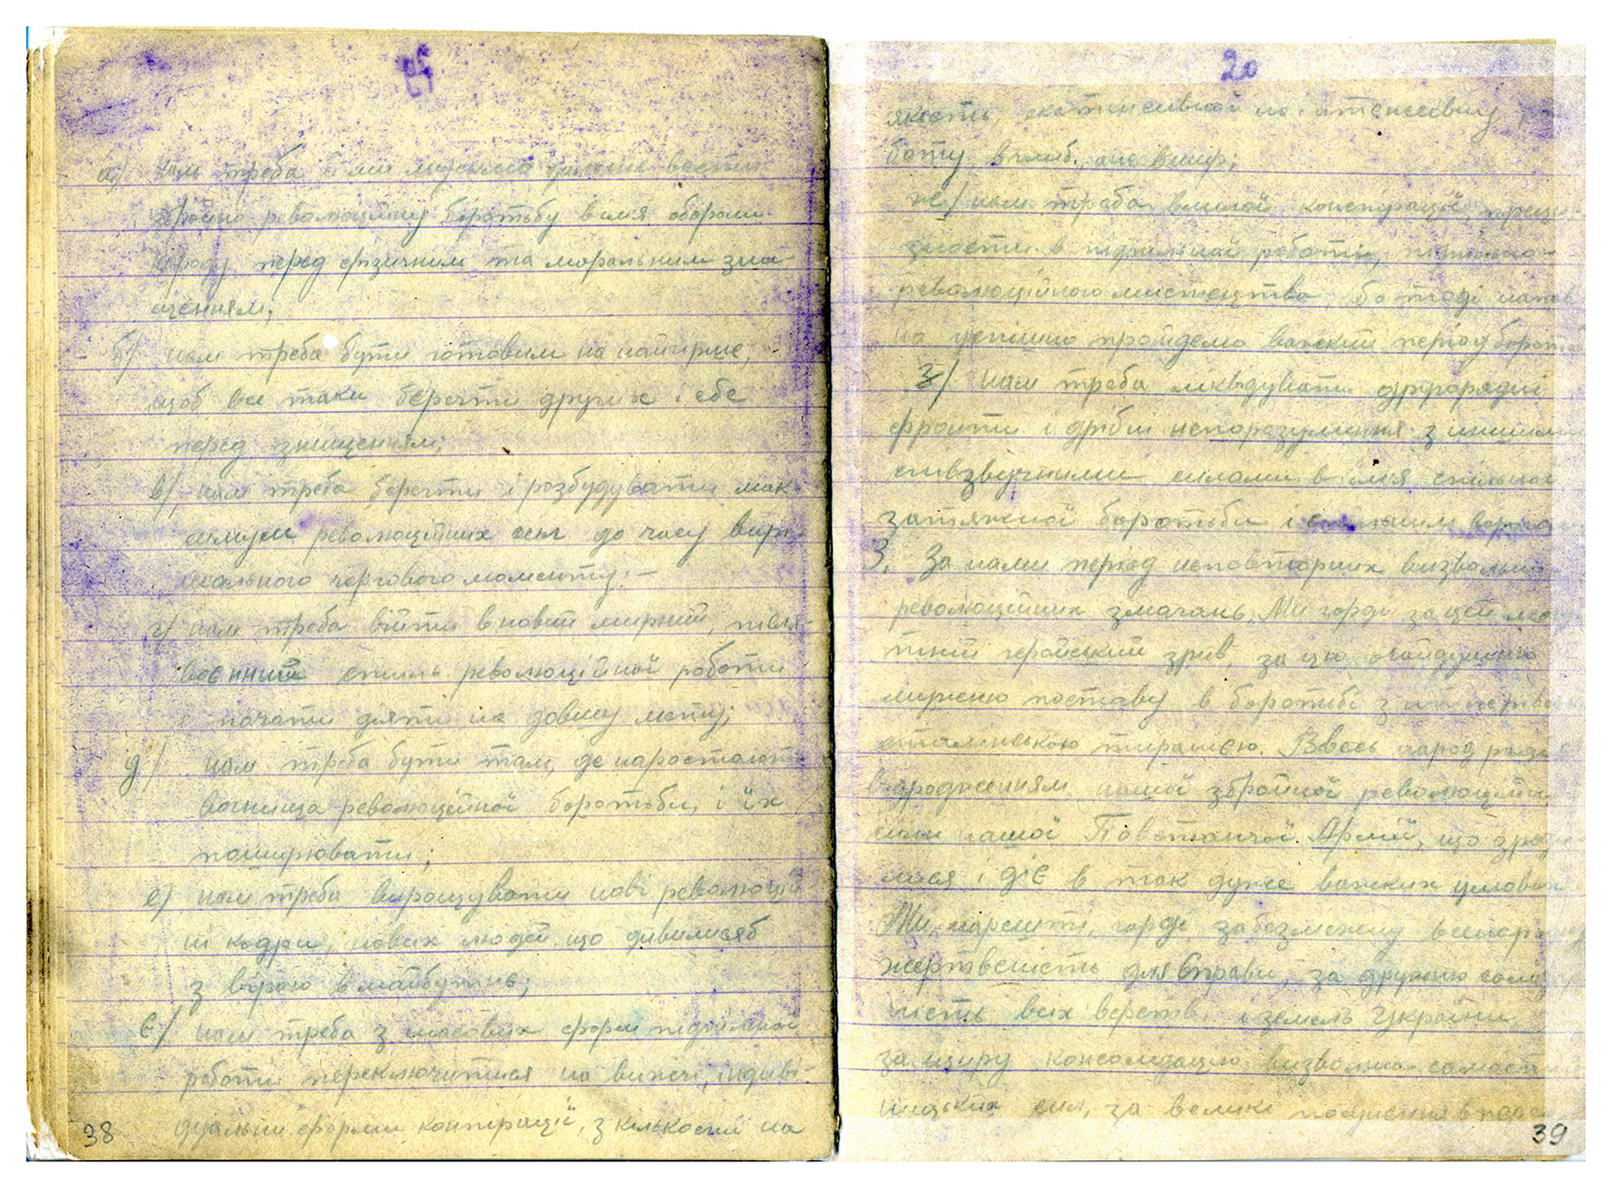 а/ нам треба і ми мусимо вести
збройно революційну боротьбу в імя оборони
народу перед фізичним та моральним зни-
щенням;
б/ нам треба бути готовим на найгірше,
щоб все таки берегти других і себе
перед знищенням;
в/ нам треба берегти і розбудувати мак-
симум революційних сил до часу вирі-
шального чергового моменту. —
г/ нам треба війти в новий мирний, після
воєнний стиль революційної роботи
і почати діяти на довшу мету;
д/ нам треба бути там, де наростають
вогнища революційної боротьби, і їх
поширювати;
е/ нам треба вирощувати нові революцій-
ні кадри, нових людей що дивилисяб
з вірою в майбутнє;
є/ нам треба з масових форм підпільної
роботи переключитися на вищі, індиві-
дуальні форми конспірації, з кількости на
38
20
якість, екстенсивної на інтенсивну р
боту вглиб, а не вшир;
ж/ нам треба вмілої конспірації, преци-
зности в підпільній роботі,
революційного мистецтва, бо тоді напев
но успішно пройдемо важкий період бороть
з/ нам треба ліквідувати другорядні
фронти і дрібні непорозуміння з іншими
співзвучними силами в імя спільної
затяжної боротьби і спільним ворогом
3. За нами період неповторних визвольно
революційних змагань. Ми горді за цей
тній геройський зрив, за цю
мужню поставу в боротьбі з імперіялі
сталінською тиранією. Ввесь народ
відродженням нашої збройної революційн
сили нашої Повстанчої Армії, що зроди
лася і діє в так дуже важких умовах
Ми, нарешті, горді за безмежну всенарод
жертвеність для справи, за дружню солід
ність всіх верств і земель України,
за щиру консолідацію визвольно самості
ницьких сил, за великі
39